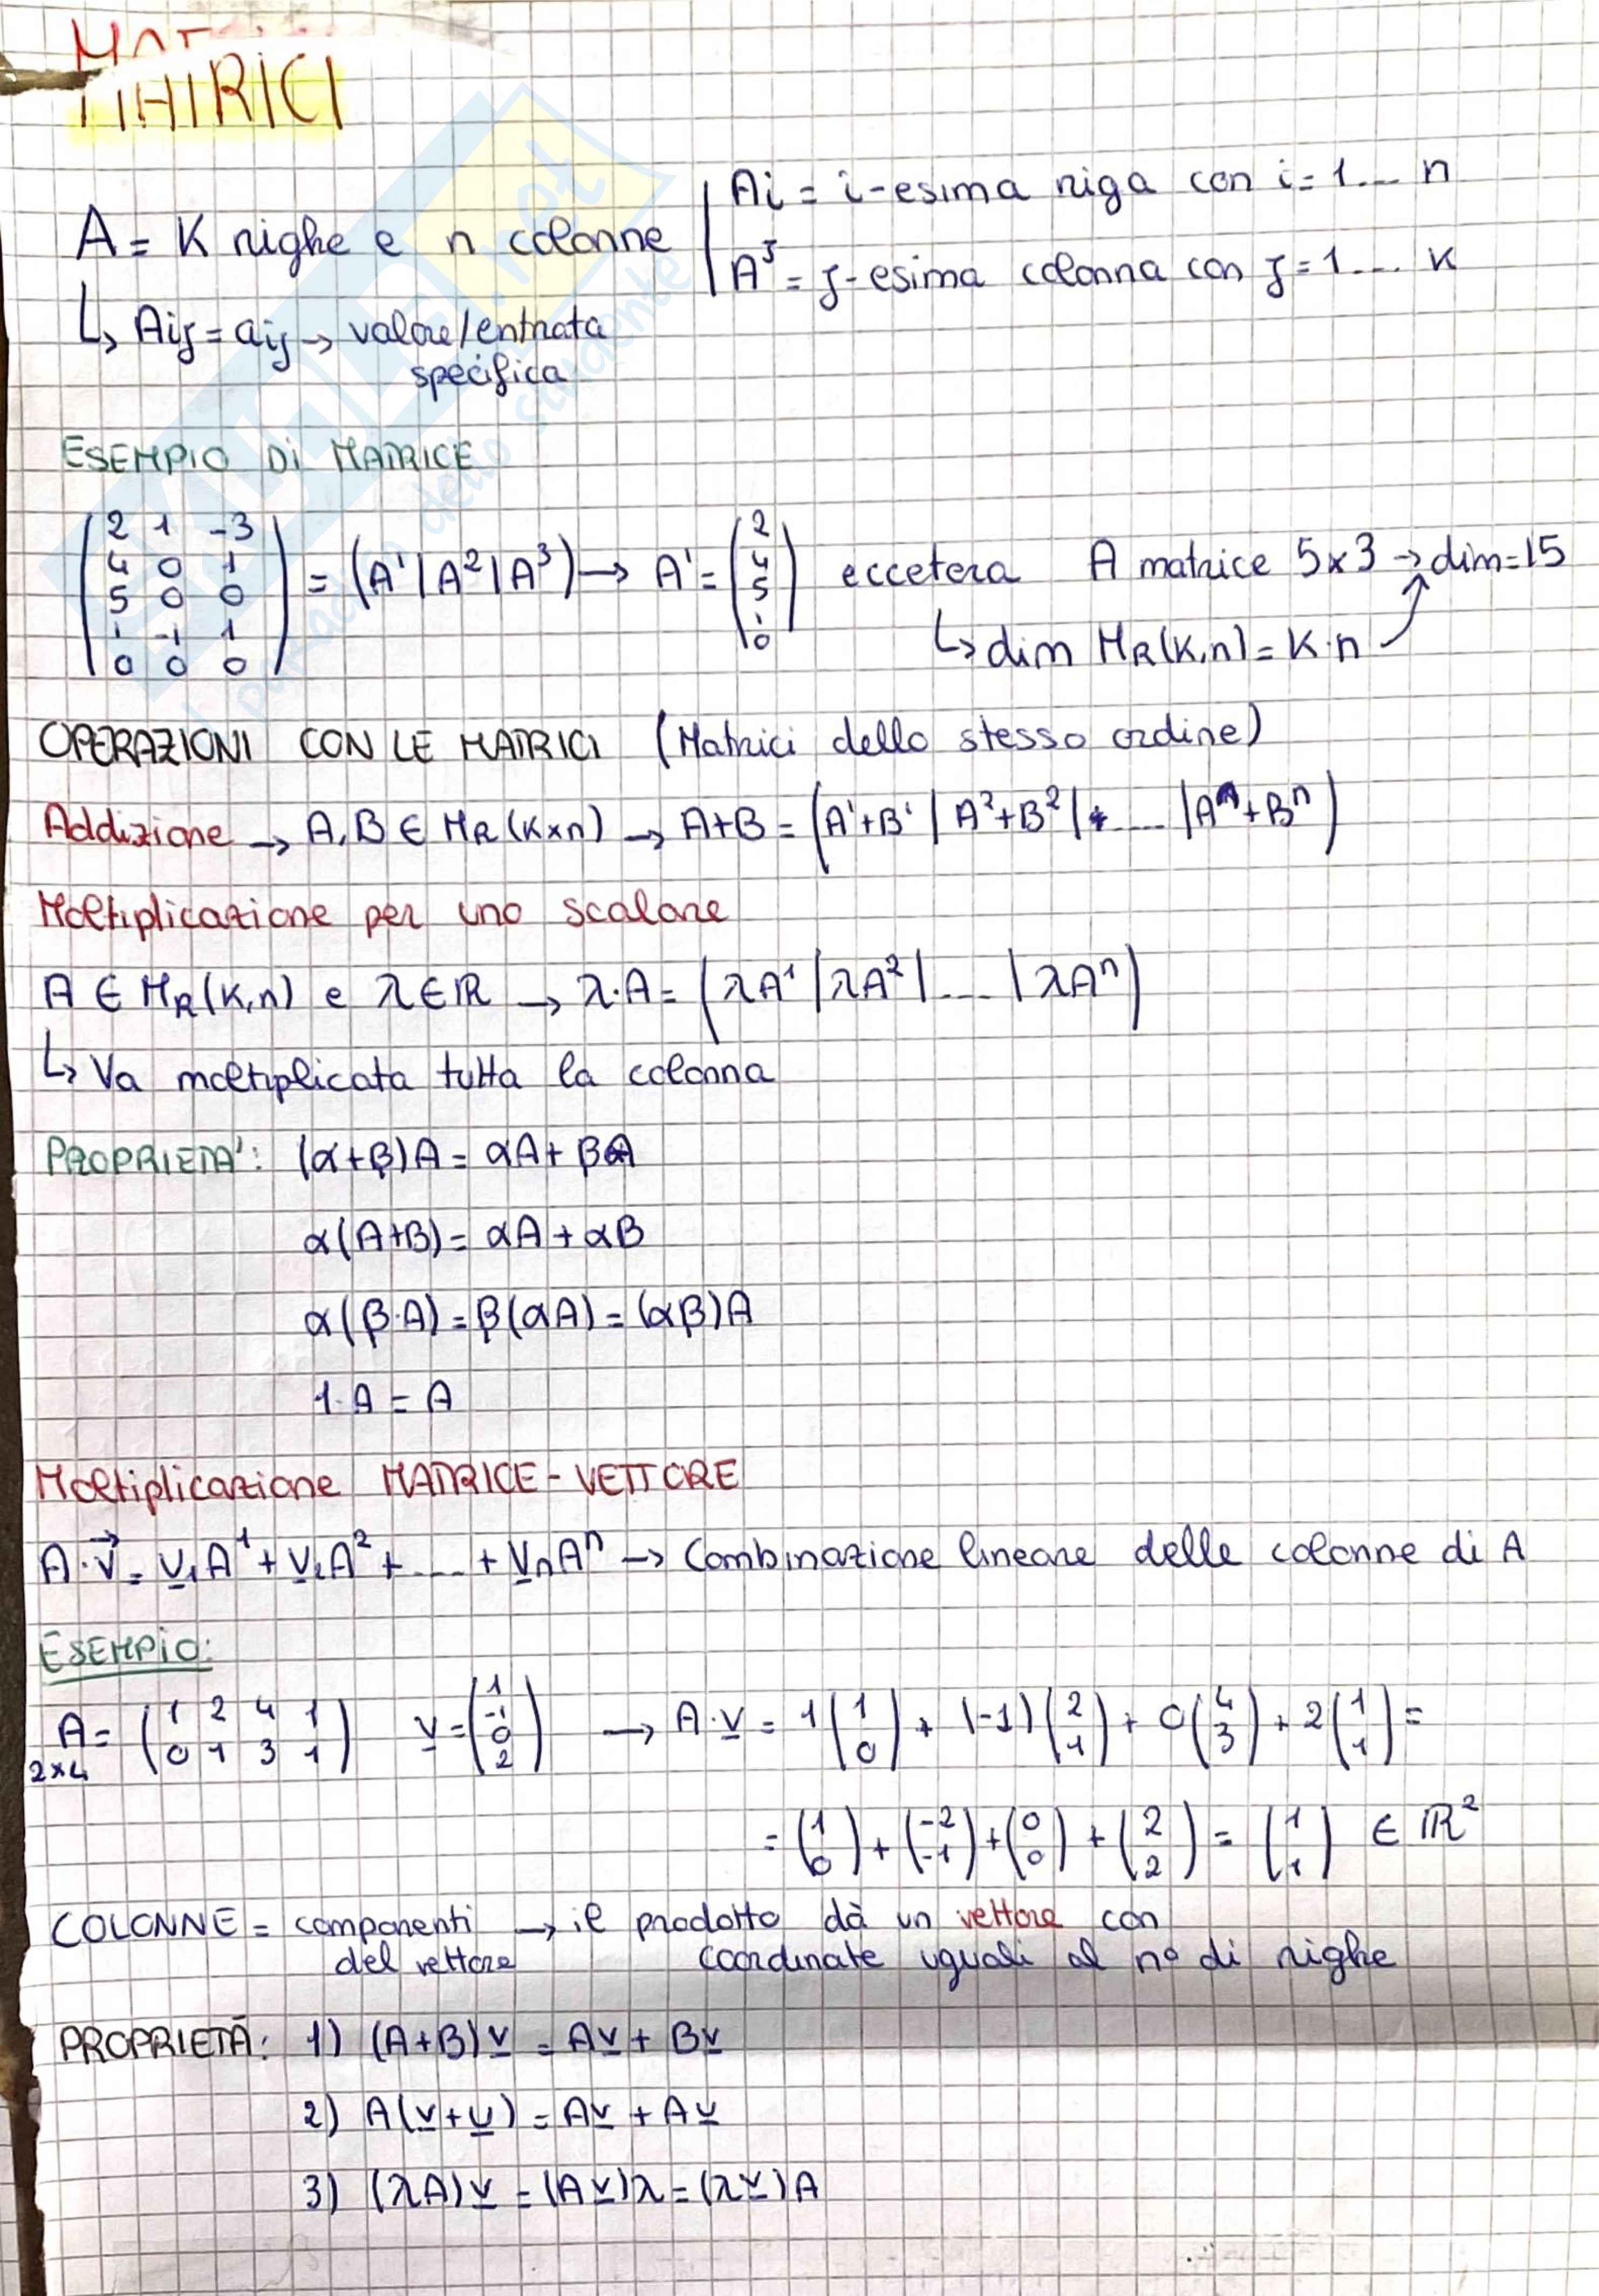 MATRICI
A = K righe e n colonne
Ai = i-esima riga con i = 1 ... n
A^J = J-esima colonna con J = 1 ... K
↳ Aij = aij → valore/entrata
specifica
ESEMPIO DI MATRICE
(2 1 -3; 4 0 1; 5 0 0; 1 -1 1; 0 0 0) = (A¹ | A² | A³) → A¹ = (2; 4; 5; 1; 0) eccetera A matrice 5x3 → dim=15
↳ dim M_R(K,n) = K·n
OPERAZIONI CON LE MATRICI (Matrici dello stesso ordine)
Addizione → A,B ∈ M_R(K×n) → A+B = (A¹+B¹ | A²+B² | ... | Aⁿ+Bⁿ)
Moltiplicazione per uno scalare
A ∈ M_R(K,n) e λ∈ℝ → λ·A = (λA¹ | λA² | ... | λAⁿ)
↳ Va moltiplicata tutta la colonna
PROPRIETA': (α+β)A = αA + βA
α(A+B) = αA + αB
α(β·A) = β(αA) = (αβ)A
1·A = A
Moltiplicazione MATRICE - VETTORE
A·v⃗ = v₁A¹ + v₂A² + ... + vₙAⁿ → Combinazione lineare delle colonne di A
ESEMPIO:
A = (1 2 4 1; 0 1 3 1) v = (1; -1; 0; 2) → A·v = 1(1; 0) + (-1)(2; 1) + 0(4; 3) + 2(1; 1) =
2×4
= (1; 0) + (-2; -1) + (0; 0) + (2; 2) = (1; 1) ∈ ℝ²
COLONNE = componenti → il prodotto dà un vettore con
del vettore coordinate uguali al n° di righe
PROPRIETÀ: 1) (A+B)v = Av + Bv
2) A(v+u) = Av + Au
3) (λA)v = (Av)λ = (λv)A